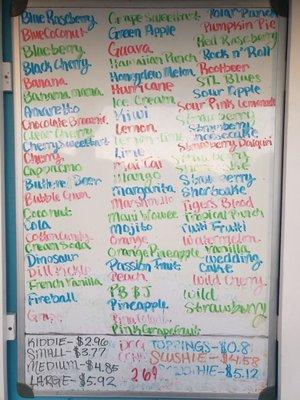 Blue Raspberry
Blue Coconut
Blueberry
Black Cherry
Banana
Amaretto
Cherry
Bubble Gum
Coconut
Cola
Cotton Candy
Cream Soda
Dinosaur
Dill Pickle
French Vanilla
Fireball
Grape
Green Apple
Guava
Hawaiian Punch
Honeydew Melon
Hurricane
Ice Cream
Kiwi
Lemon
Lemon-Lime
Lime
Mai Tai
Mango
Margarita
Marshmello
Maui Wowee
Mojito
Orange
Orange Pineapple
Passion Fruit
Peach
PB&J
Pineapple
Pink Grapefruit
Polar Punch
Pumpkin Pie
Red Raspberry
Rock n' Roll
Rootbeer
STL Blues
Sour Apple
Sour Pink Lemonade
Strawberry
Strawberry
Cheesecake
Strawberry Daiquiri
Strawberry
Shortcake
Tigers Blood
Tropical Punch
Tutti Frutti
Watermelon
Vanilla
Wedding
Cake
Wild Cherry
Wild
Strawberry
KIDDIE-$2.96
SMALL-$3.77
MEDIUM-$4.85
LARGE-$5.92
TOPPINGS-$0.8
SLUSHIE-$4.58